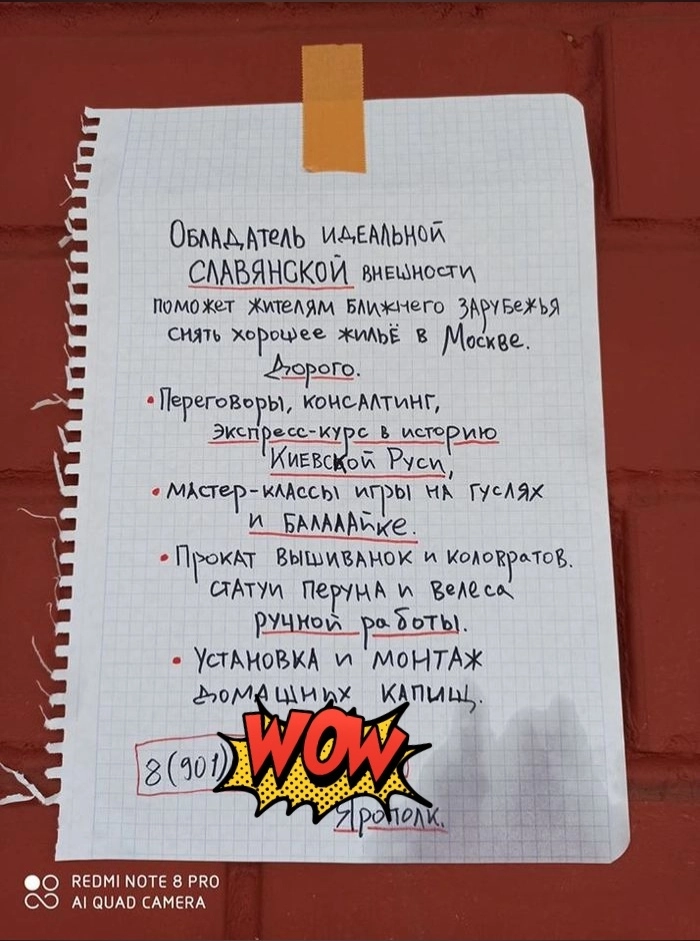 Обладатель идеальной
СЛАВЯНСКОЙ внешности
поможет жителям ближнего зарубежья
снять хорошее жильё в Москве.
Дорого.
• Переговоры, консалтинг,
экспресс-курс в историю
Киевской Руси,
• мастер-классы игры на гуслях
и балалайке.
• Прокат вышиванок и коловратов.
статуи Перуна и Велеса
ручной работы.
• Установка и монтаж
домашних капищ.
8(901)
WOW
Ярополк.
REDMI NOTE 8 PRO
AI QUAD CAMERA